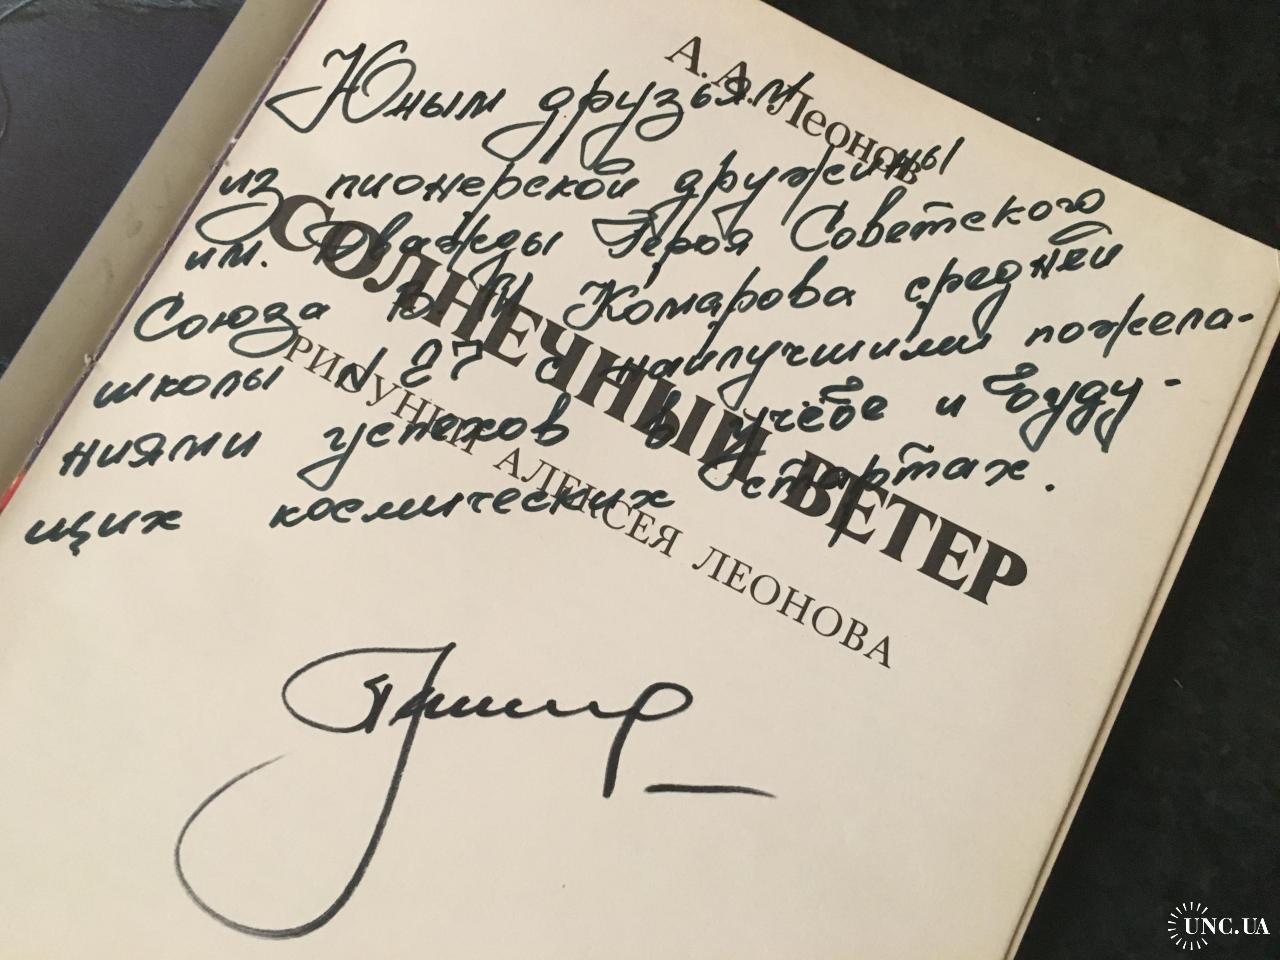 А. А. Леонов
СОЛНЕЧНЫЙ ВЕТЕР
РИСУНКИ АЛЕКСЕЯ ЛЕОНОВА
Юным друзьям
из пионерской дружины
им. Дважды Героя Советского
Союза В. М Комарова средней
школы № 27 с наилучшими пожела-
ниями успехов в учёбе и буду-
щих космических стартах.
UNC.UA